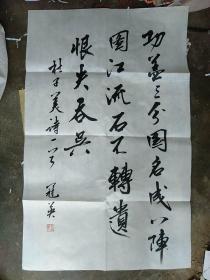 功盖三分国名成八陣
圖江流石不轉遺
恨失吞吴
杜子美诗一首 冠英